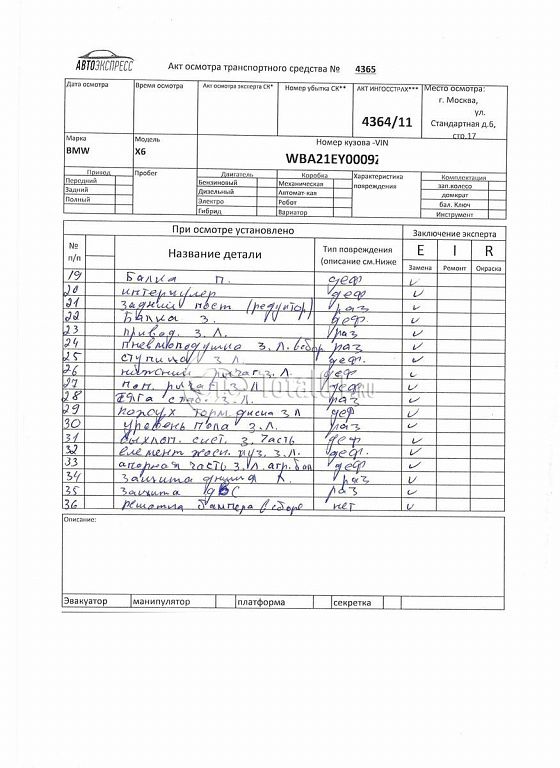 АВТОЭКСПРЕСС
Акт осмотра транспортного средства № 4365
Дата осмотра Время осмотра Акт осмотра эксперта СК* Номер убытка СК** АКТ ИНГОССТРАХ*** Место осмотра:
г. Москва,
4364/11 ул.
Стандартная д.6,
стр.17
Марка Модель Номер кузова -VIN
BMW X6 WBA21EY0009
Привод Пробег Двигатель Коробка Характеристика Комплектация
Передний Бензиновый Механическая повреждения зап.колесо
Задний Дизельный Автомат-кая домкрат
Полный Электро Робот бал. Ключ
Гибрид Вариатор Инструмент
При осмотре установлено Заключение эксперта
№ п/п Название детали Тип повреждения (описание см.Ниже E I R
Замена Ремонт Окраска
19 Балка п. деф ✓
20 интеркулер деф ✓
21 задний мост (редуктор) раз ✓
22 Балка з. деф. ✓
23 привод. з.л. раз ✓
24 пневмоподушка з.л. в сбор раз ✓
25 ступица з.л. деф. ✓
26 нижний рычаг з.л. деф ✓
27 поп. рычаг з л деф ✓
28 тяга стаб. з.л. раз ✓
29 кожух торм диска з л деф ✓
30 уровень пола з.л. раз ✓
31 выхлоп. сист. з. часть деф ✓
32 элемент жест. куз. з.л. деф. ✓
33 опорная часть з.л. деф ✓
34 защита днища л. раз ✓
35 защита ДВС раз ✓
36 решотка бампера в сборе нет ✓
Описание:
Эвакуатор манипулятор платформа секретка